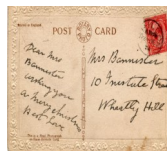 POST CARD
Dear Mrs
Bannister
wishing you
a Merry christmas
Best Love
Mrs Bannister
10 Institute Street
Wheatley Hill